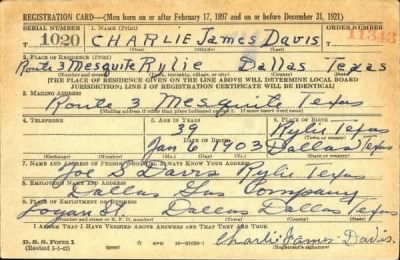 REGISTRATION CARD—(Men born on or after February 17, 1897 and on or before December 31, 1921)
SERIAL NUMBER 1. NAME (Print) ORDER NUMBER
T 1020 CHARLIE James Davis 11343
(First) (Middle) (Last)
2. PLACE OF RESIDENCE (Print)
Route 3 Mesquite Rylie Dallas Texas
(Number and street) (Town, township, village, or city) (County) (State)
[THE PLACE OF RESIDENCE GIVEN ON THE LINE ABOVE WILL DETERMINE LOCAL BOARD
JURISDICTION; LINE 2 OF REGISTRATION CERTIFICATE WILL BE IDENTICAL]
3. MAILING ADDRESS
Route 3 Mesquite Texas
[Mailing address if other than place indicated on line 2. If same insert word same]
4. TELEPHONE 5. AGE IN YEARS 6. PLACE OF BIRTH
39 Rylie Texas
DATE OF BIRTH (Town or county)
Jan 6 1903 Dallas Texas
(Exchange) (Number) (Mo.) (Day) (Yr.) (State or country)
7. NAME AND ADDRESS OF PERSON WHO WILL ALWAYS KNOW YOUR ADDRESS
Joe S Davis Rylie Texas
8. EMPLOYER'S NAME AND ADDRESS
Dallas Gas Company
9. PLACE OF EMPLOYMENT OR BUSINESS
Logan St Dallas Dallas Texas
(Number and street or R. F. D. number) (Town) (County) (State)
I AFFIRM THAT I HAVE VERIFIED ABOVE ANSWERS AND THAT THEY ARE TRUE.
D. S. S. Form 1
(Revised 1-1-42) 16-21630-1 Charlie James Davis.
(Registrant's signature)